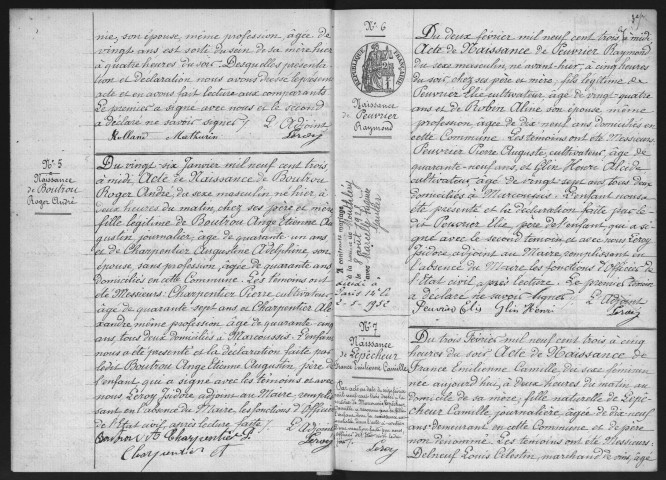 nie, son épouse, même profession, âgée de
vingt ans est sorti du sein de sa mère hier
à quatre heures du soir. Desquelles présentation
et déclaration nous avons dressé le présent
acte et en avons fait lecture aux comparants
Le premier a signé avec nous et le second
a déclaré ne savoir signer. L'Adjoint
Rolland Mathurin Leroy
N° 5
Naissance
de Boutrou
Roger André
Du vingt six Janvier mil neuf cent trois
à midi Acte de Naissance de Boutrou
Roger André, du sexe masculin né hier à
deux heures du matin, chez ses père et mère
fille légitime de Boutrou Ange Etienne Au
gustin journalier, âgé de quarante un ans
et de Charpentier Augustine Adelphine, son
épouse, sans profession, âgée de quarante ans
domiciliés en cette Commune. Les témoins ont
été Messieurs: Charpentier Pierre cultivateur
âgé de quarante sept ans et Charpentier Ale
xandre même profession âgé de quarante cinq
ans tous deux domiciliés à Marcoussis. L'enfant
nous a été présenté et la déclaration faite par le
dit Boutrou Ange Etienne Augustin, père de
l'enfant qui a signé avec les témoins et avec
nous Leroy Isidore adjoint au Maire, remplis
sant en l'absence du Maire, les fonctions d'Officier
de l'Etat civil, après lecture faite. L'Adjoint
Boutrou Charpentier P. Leroy
Charpentier A
N° 6
RÉPUBLIQUE FRANÇAISE
Naissance
de Peuvrier
Raymond
A contracté mariage
le 8 août 1925
avec Marcelle
Paris 14e
2-5-1952
Du deux février mil neuf cent trois, à midi
Acte de Naissance de Peuvrier Raymond
du sexe masculin, né avant-hier, à cinq heures
du soir, chez ses père et mère, fils légitime de
Peuvrier Elie cultivateur âgé de vingt-quatre
ans et de Robin Aline son épouse même
profession, âgée de dix neuf ans domiciliés en
cette Commune. Les témoins ont été Messieurs
Peuvrier Pierre Auguste, cultivateur, âgé de
quarante-neuf ans, et Glin Henri Alcide
cultivateur, âgé de vingt sept ans tous deux
domiciliés à Marcoussis. L'enfant nous a
été présenté et la déclaration faite par le
dit Peuvrier Elie, père de l'enfant, qui a si
gné avec le second témoin et avec nous Leroy
Isidore adjoint au Maire remplissant en
l'absence du Maire les fonctions d'Officier de
l'état civil, après lecture. Le premier témoin
a déclaré ne savoir signer. L'Adjoint
Peuvrier Elie Glin Henri Leroy
N° 7
Naissance
de Lépécheur
France Emilienne Camille
Leroy
Du trois Février mil neuf cent trois à cinq
heures du soir Acte de Naissance de
France Emilienne Camille du sexe féminin
née aujourd'hui, à deux heures du matin au
domicile de sa mère, fille naturelle de Lépé
cheur Camille, journalière, âgée de dix neuf
ans demeurant en cette Commune et de père
non dénommé. Les témoins ont été Messieurs
Delneuf Louis Célestin, marchand de vins, âgé